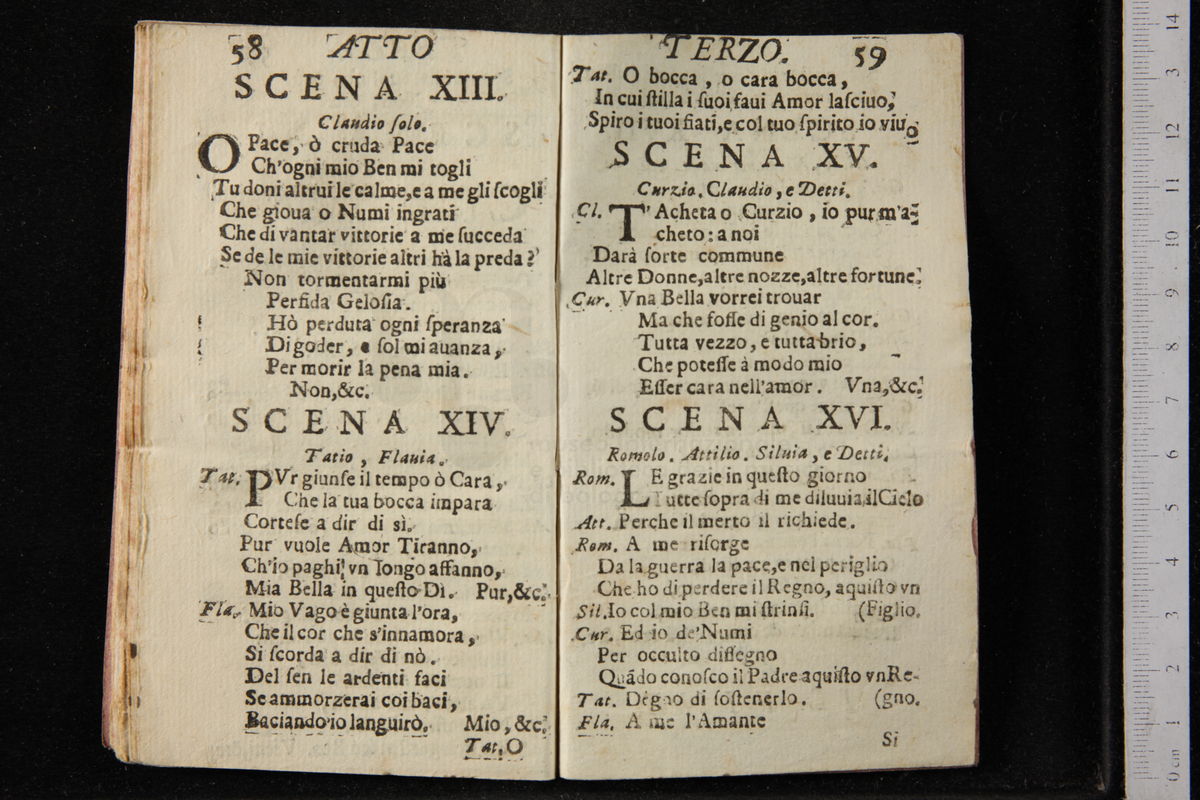 58 ATTO
SCENA XIII.
Claudio ſolo.
O Pace, ò cruda Pace
Ch'ogni mio Ben mi togli
Tu doni altrui le calme, e a me gli ſcogli
Che gioua o Numi ingrati
Che di vantar vittorie a me ſucceda
Se de le mie vittorie altri hà la preda?
Non tormentarmi più
Perfida Geloſia.
Hò perduta ogni ſperanza
Di goder, e ſol mi auanza,
Per morir la pena mia.
Non,&c.
SCENA XIV.
Tatio, Flauia.
Tat. PVr giunſe il tempo ò Cara,
Che la tua bocca impara
Corteſe a dir di sì.
Pur vuole Amor Tiranno,
Ch'io paghi vn longo affanno,
Mia Bella in queſto Dì. Pur,&c.
Fla. Mio Vago è giunta l'ora,
Che il cor che s'innamora,
Si ſcorda a dir di nò.
Del ſen le ardenti faci
Se ammorzerai coi baci,
Baciando io languirò. Mio, &c.
Tat. O
TERZO. 59
Tat. O bocca, o cara bocca,
In cui ſtilla i ſuoi faui Amor laſciuo,
Spiro i tuoi fiati, e col tuo ſpirito io viuo
SCENA XV.
Curzio. Claudio, e Detti.
Cl. T'Acheta o Curzio, io pur m'a-
cheto: a noi
Darà ſorte commune
Altre Donne, altre nozze, altre fortune.
Cur. Vna Bella vorrei trouar
Ma che foſſe di genio al cor.
Tutta vezzo, e tutta brio,
Che poteſſe à modo mio
Eſſer cara nell'amor. Vna,&c.
SCENA XVI.
Romolo. Attilio. Siluia, e Detti.
Rom. LE grazie in queſto giorno
Tutte ſopra di me diluuia il Cielo
Att. Perche il merto il richiede.
Rom. A me riſorge
Da la guerra la pace, e nel periglio
Che ho di perdere il Regno, aquiſto vn
Sil. Io col mio Ben mi ſtrinſi. (Figlio.
Cur. Ed io de'Numi
Per occulto diſſegno
Quãdo conoſco il Padre aquiſto vn Re-
Tat. Degno di ſoſtenerlo. (gno.
Fla. A me l'Amante
Si
0 cm 1 2 3 4 5 6 7 8 9 10 11 12 13 14